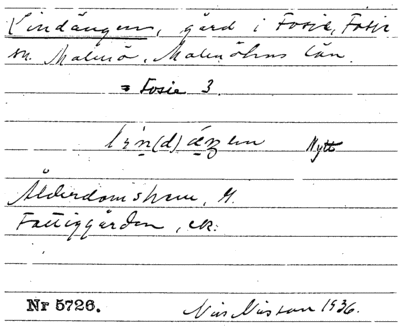 Lindängen, gård i Fosie, Fosie
sn. Malmö, Malmöhus län.
= Fosie 3.
Nytt
Ålderdomshem, H.
Fattiggården, ck:
Nr 5726. Nils Nilsson 1936.